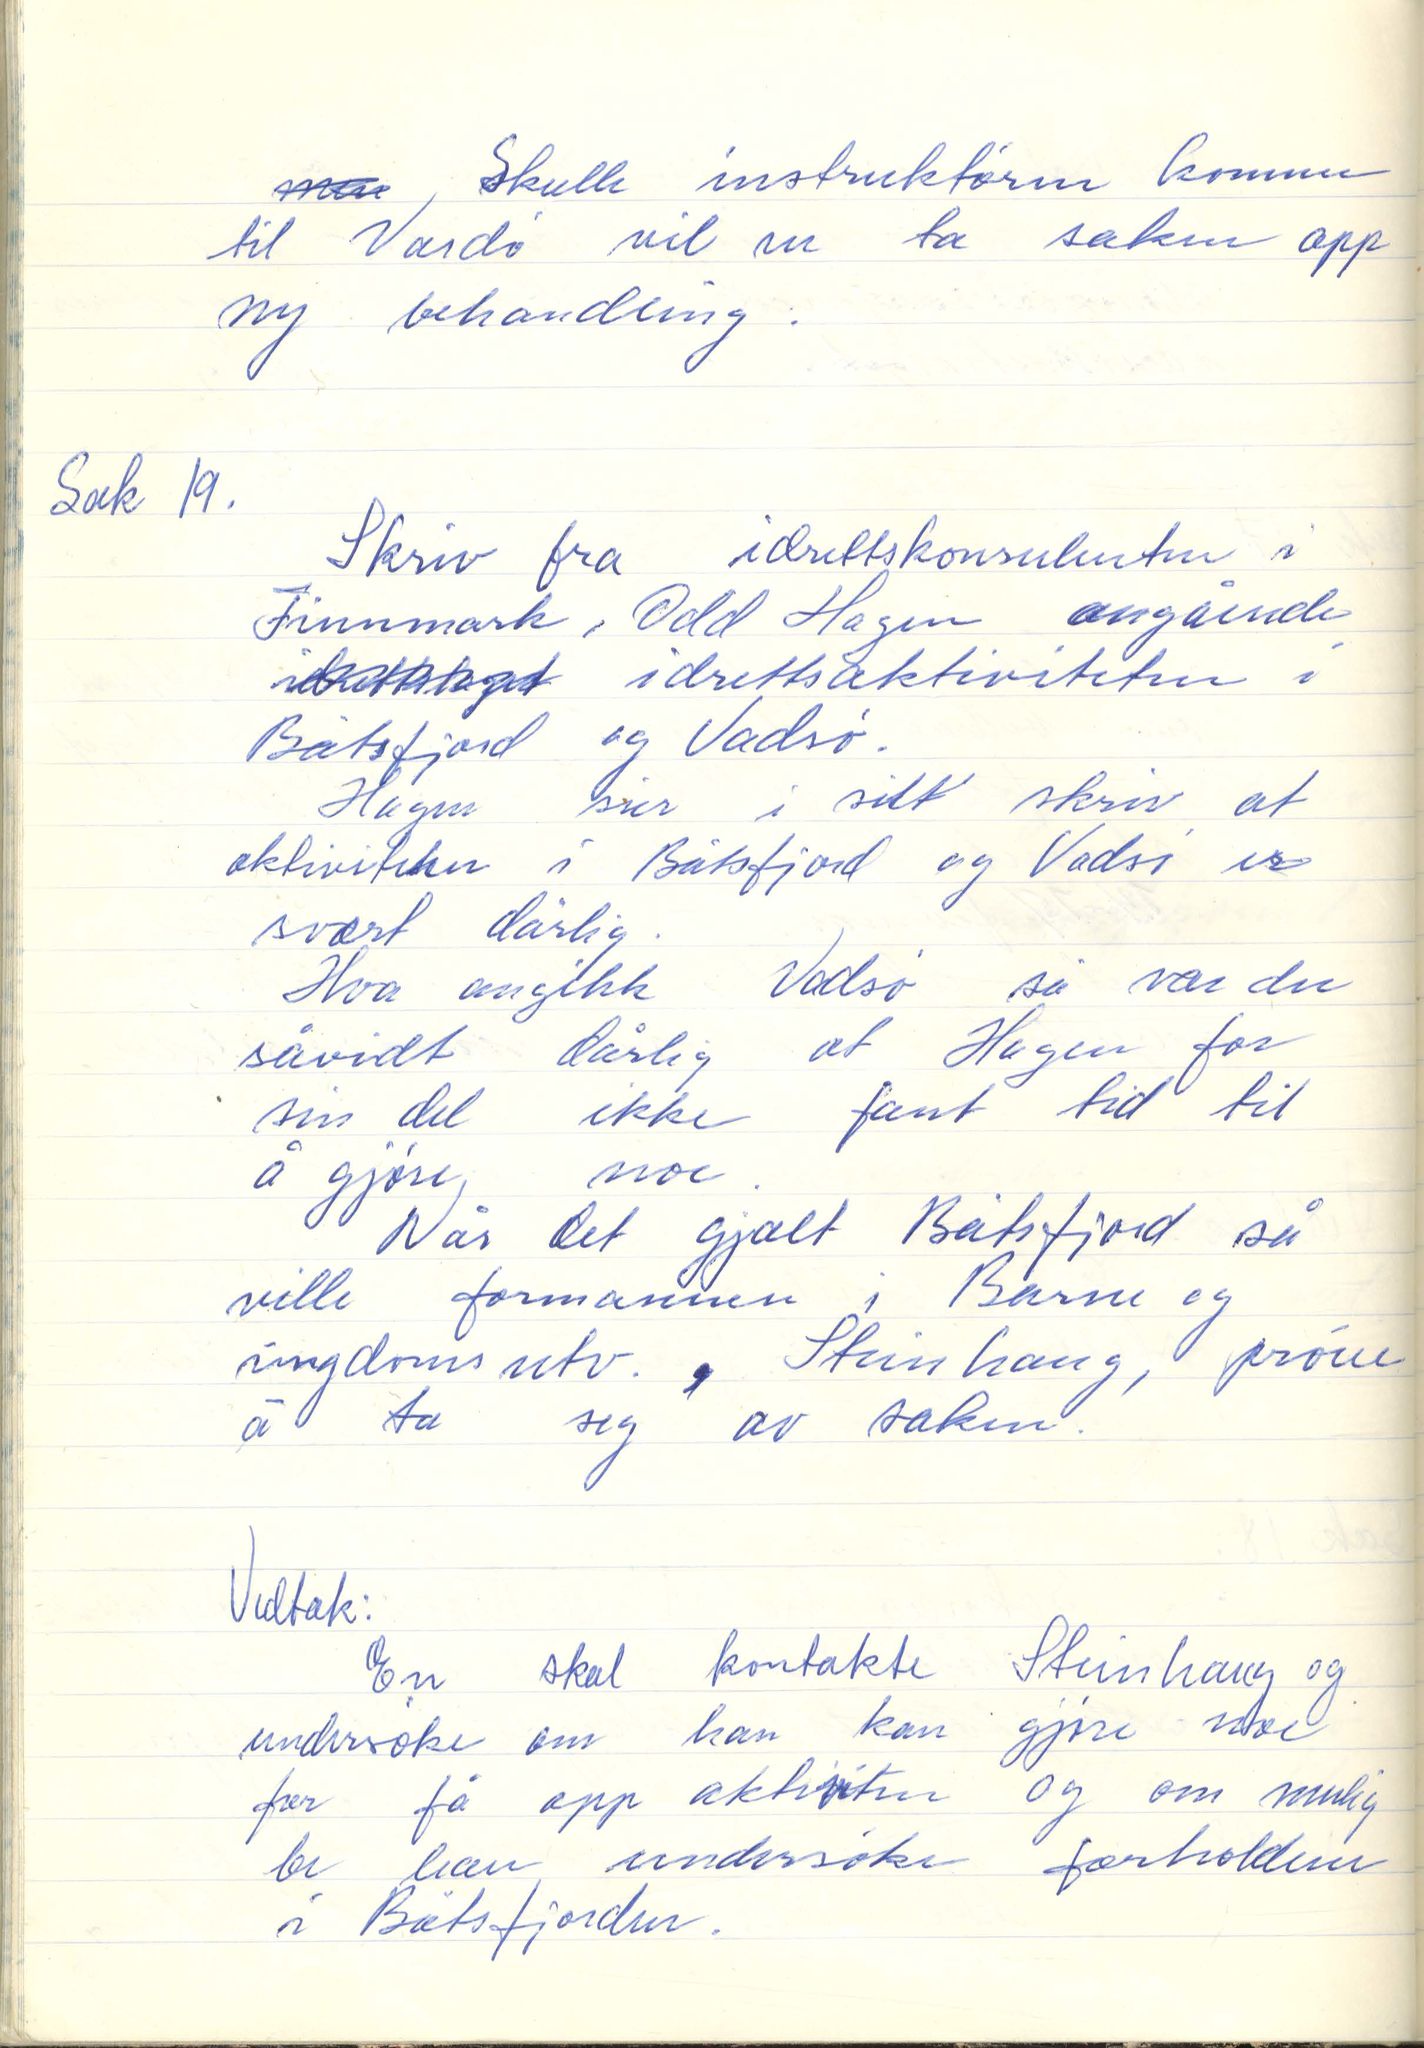 Skulle instruktøren komme
til Vardø vil en ta saken opp
ny behandling.
Sak 19.
Skriv fra idrettskonsulenten i
Finnmark, Odd Hagen angående
idrettsaktiviteten i
Båtsfjord og Vadsø.
Hagen sier i sitt skriv at
aktiviteten i Båtsfjord og Vadsø er
svært dårlig.
Hva angikk Vadsø så var den
såvidt dårlig at Hagen for
sin del ikke fant tid til
å gjøre noe.
Når det gjalt Båtsfjord så
ville formannen i Barne og
ungdomsutv., Steinhaug, prøve
å ta seg av saken.
Vedtak:
En skal kontakte Steinhaug og
undersøke om han kan gjøre noe
for få opp aktiviten og om mulig
be han undersøke forholdene
i Båtsfjorden.